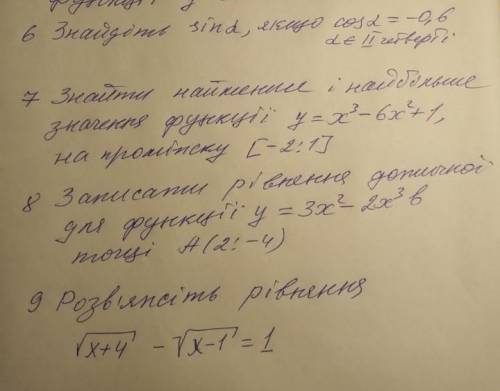 функції у
6 Знайдіть sinα, якщо cosα = -0,6
α ∈ II четверті
7 Знайти найменше і найбільше
значення функції y = x³ - 6x² + 1,
на проміжку [-2; 1]
8 Записати рівняння дотичної
для функції y = 3x² - 2x³ в
точці A(2; -4)
9 Розв'яжіть рівняння
√x+4 - √x-1 = 1